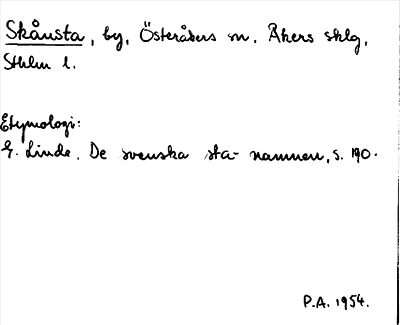 Skånsta, by, Österåkers sn. Åkers sklg,
Sthlm l.
Etymologi:
G. Linde. De svenska sta- namnen, s. 190.
P.A. 1954.